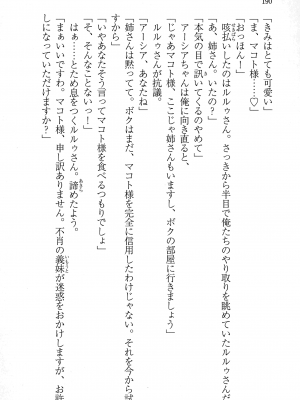 190
「きみはとても可愛い」
「ま、マコト様……♡」
「おっほん！」
咳払いしたのはルルゥさん。さっきから半目で俺たちのやり取りを眺めていたルルゥさんだ
「あ、姉さん。いたの？」
「本気の目で訊いてくるのやめて」
アーシアちゃんは俺に向き直ると、
「じゃあマコト様、ここじゃ姉さんもいますし、ボクの部屋に行きましょう」
ルルゥさんが抗議。
「アーシア、あなたね」
「姉さんは黙ってて。ボクはまだ、マコト様を完全に信用したわけじゃない。それを今から試
すから」
「いやあなたそう言ってマコト様を食べるつもりでしょ」
「そ、そんなことないっ！」
はぁ……とため息をつくルルゥさん。諦めたよう。
「まぁいいですわ。マコト様、申し訳ありません。不肖の義妹が迷惑をおかけしますが、お許
しになっていただけますか？」